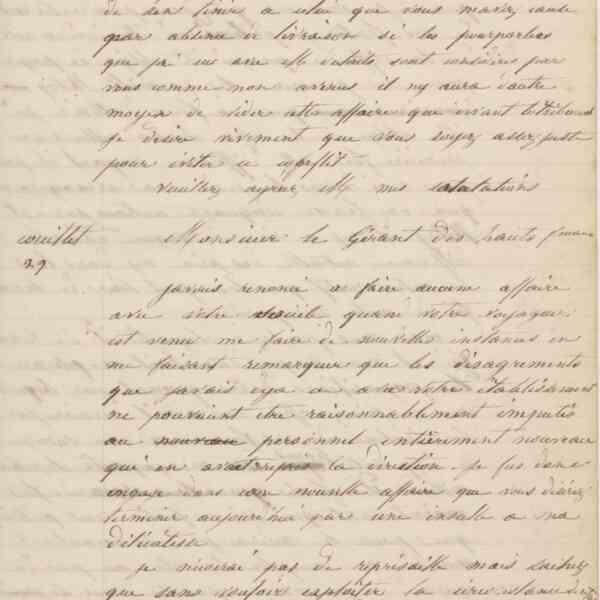 de son finir a celui que vous m'avez causé
par absence de livraison si les pourparlers
que j'ai eus avec M sont considérés par
vous comme non avenus il n'y aura d'autre
moyen de vider cette affaire que devant le tribunal
je desire vivement que vous soyez assez juste
pour eviter ce conflit
Veuillez agréer M mes salutations
Couillet Monsieur le Gérant des hauts fourneaux
29
J'avais renoncé a faire aucune affaire
avec votre société quand votre voyageur
est venu me faire de nouvelles instances en
me faisant remarquer que les désagrements
que j'avais eya a avec votre établissement
ne pouvaient être raisonnablement imputés
au nouveau personnel entièrement nouveau
qui en avait repris la direction. Je fus donc
engagé dans une nouvelle affaire que vous désirez
terminer aujourd'hui par une insulte a ma
délicatesse
je n'userai pas de représaille mais sachez
que sans vouloir exploiter la circonstance